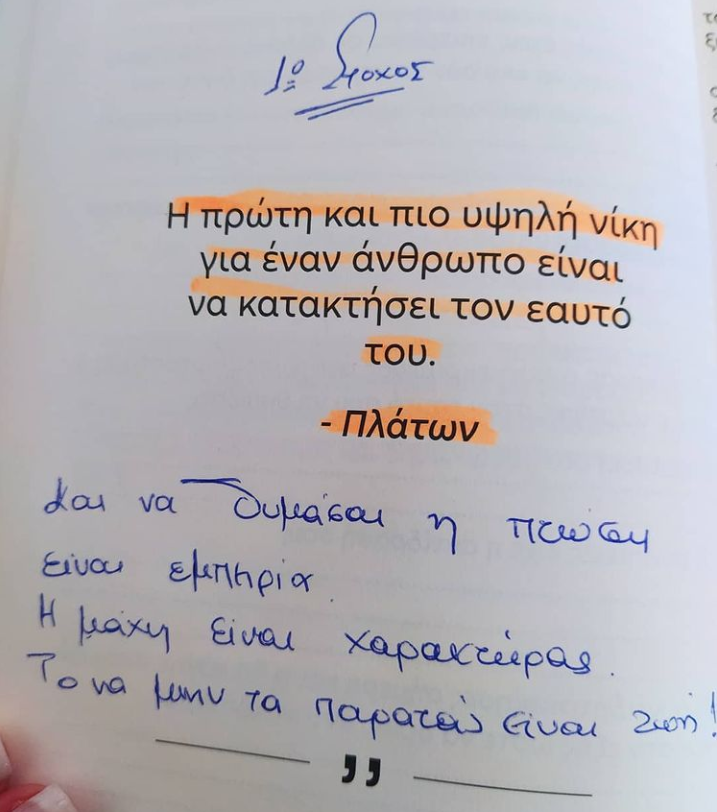 1º Στοχος
Η πρώτη και πιο υψηλή νίκη
για έναν άνθρωπο είναι
να κατακτήσει τον εαυτό
του.
- Πλάτων
Και να θυμάσαι η πτώση
είναι εμπηρία.
Η μάχη είναι χαρακτήρας.
Το να μην τα παρατάς είναι ζωή!
”